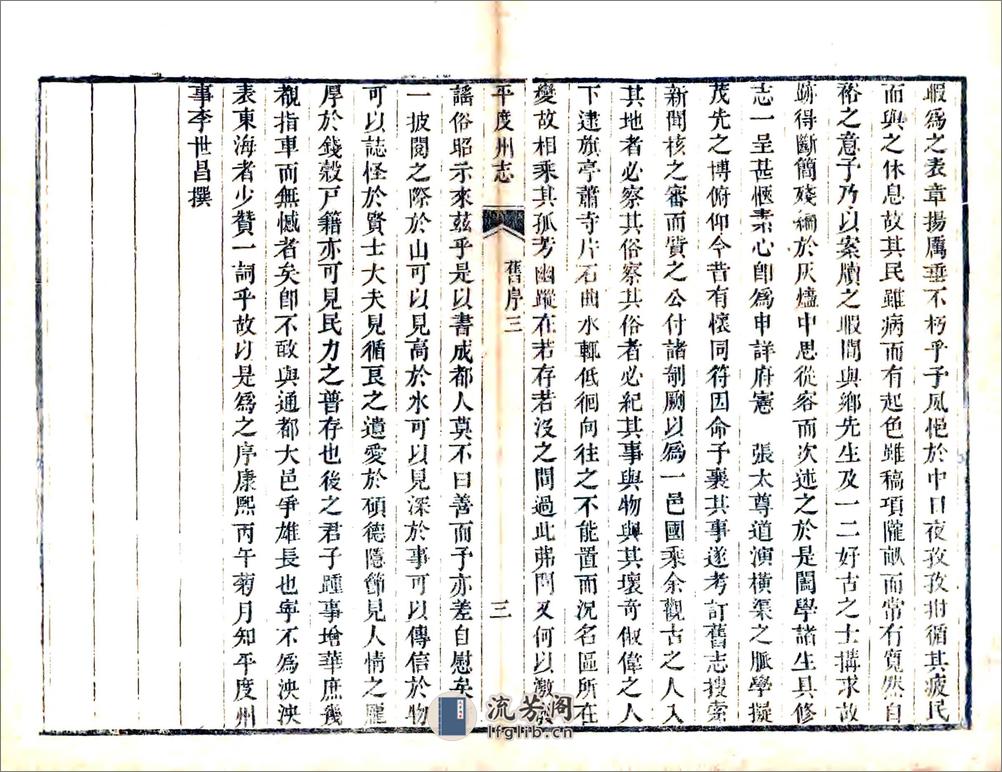 暇爲之表章揚厲垂不朽乎予風悒於中日夜孜孜拊循其疲民
而與之休息故其民雖病而有起色雖稿項隴畝而常有寬然自
裕之意子乃以案牘之暇間與鄉先生及一二好古之士搆求故
跡得斷簡殘編於灰爐中思從容而次述之於是闔學諸生具修
志一呈甚愜素心卽爲申詳府憲　張太尊道演橫渠之脈學擬
茂先之博俯仰今昔有懷同符因命子襄其事遂考訂舊志搜索
新聞核之審而質之公付諸剞劂以爲一邑國乘余觀古之人入
其地者必察其俗察其俗者必紀其事與物與其壞奇俶偉之人
下逮旗亭蕭寺片石曲水輒低徊向往之不能置而況名區所在
變故相乘其孤芳幽蹤在若存若沒之間過此弗問又何以激
平度州志
舊序三
三
謠俗昭示來茲乎是以書成都人莫不曰善而予亦差自慰矣
一披閱之際於山可以見高於水可以見深於事可以傳信於物
可以誌怪於賢士大夫見循良之遺愛於碩德隱節見人情之龐
厚於錢穀戶籍亦可見民力之普存也後之君子踵事增華庶幾
觀指車而無憾者矣卽不敢與通都大邑爭雄長也寧不爲泱泱
表東海者少贊一詞乎故以是爲之序康熙丙午菊月知平度州
事李世昌撰
流芳阁
lfglib.cn